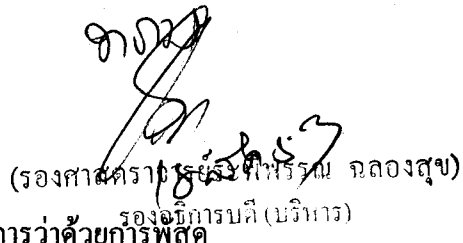 (รองศาสตราจารย์ระพีพรรณ ฉลองสุข)
รองอธิการบดี (บริหาร)
การว่าด้วยการพัสดุ